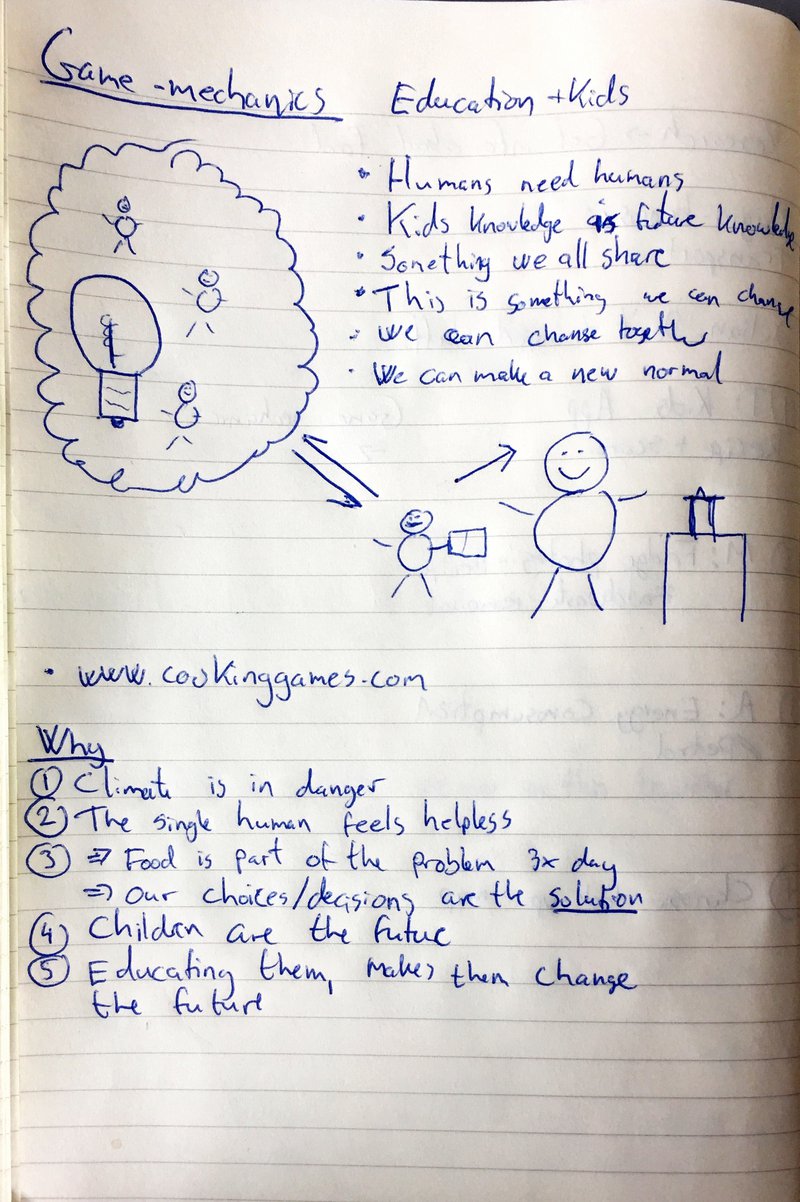 Game-mechanics Education + Kids
• Humans need humans
• Kids knowledge is future knowledge
• Something we all share
• This is something we can change
• We can change together
• We can make a new normal
• www.cookinggames.com
Why
① Climate is in danger
② The single human feels helpless
③ => Food is part of the problem 3x day
=> Our choices/decisions are the solution
④ Children are the future
⑤ Educating them, makes them change
the future